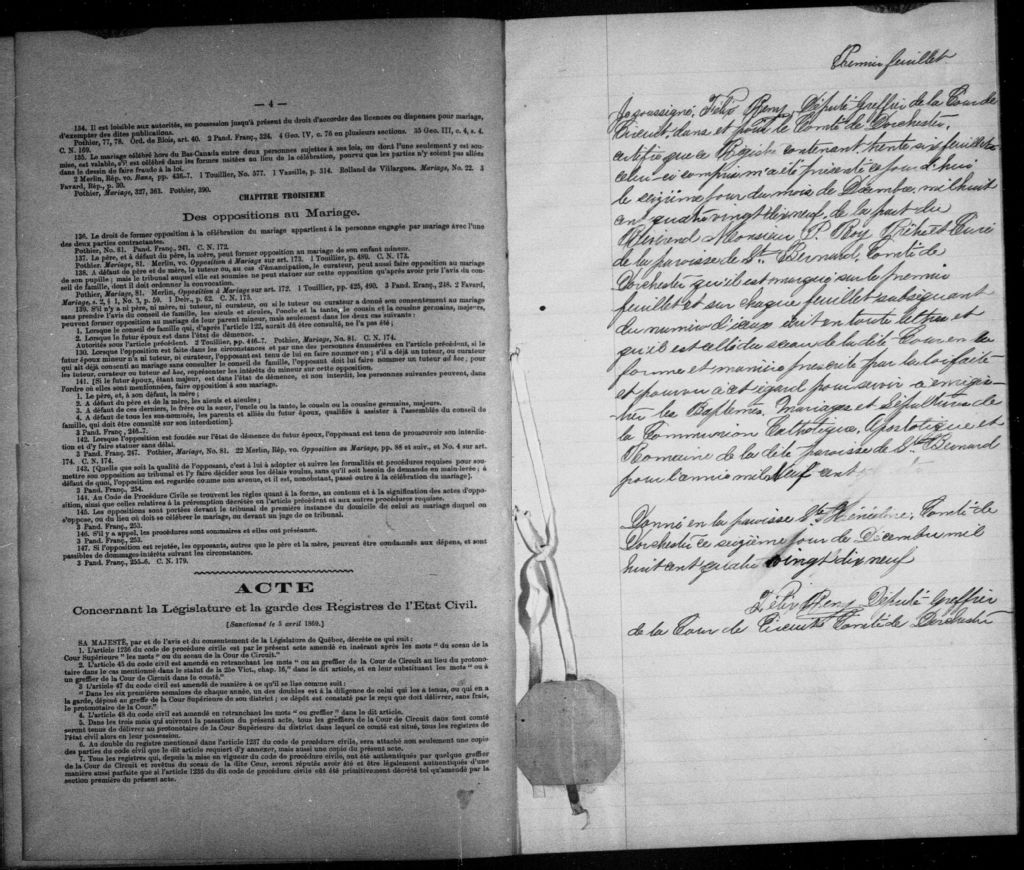 — 4 —
134. Il est loisible aux autorités, en possession jusqu'à présent du droit d'accorder des licences ou dispenses pour mariage,
d'exempter des dites publications.
Pothier, 77, 78. Ord. de Blois, art. 40. 2 Pand. Franç., 324. 4 Geo. IV, c. 76 en plusieurs sections. 35 Geo. III, c. 4, s. 4.
C. N. 169.
135. Le mariage célébré hors du Bas-Canada entre deux personnes sujettes à ses lois, ou dont l'une seulement y est sou-
mise, est valable, s'il est célébré dans les formes usitées au lieu de la célébration, pourvu que les parties n'y soient pas allées
dans le dessin de faire fraude à la loi.
2 Merlin, Rép. vo. Bans, pp. 436-7. 1 Touillier, No. 577. 1 Vazeille, p. 314. Rolland de Villargues. Mariage, No. 22. 3
Favard, Rép., p. 30.
Pothier, Mariage, 327, 363. Pothier, 390.
CHAPITRE TROISIEME
Des oppositions au Mariage.
136. Le droit de former opposition à la célébration du mariage appartient à la personne engagée par mariage avec l'une
des deux parties contractantes.
Pothier, No. 81. Pand. Franç., 241. C. N. 172.
137. Le père, et à défaut du père, la mère, peut former opposition au mariage de son enfant mineur.
Pothier, Mariage, 81. Merlin, vo. Opposition à Mariage sur art. 173. 1 Touillier, p. 489. C. N. 173.
138. A défaut de père et de mère, le tuteur, ou, au cas d'émancipation, le curateur, peut aussi faire opposition au mariage
de son pupille; mais le tribunal auquel elle est soumise ne peut statuer sur cette opposition qu'après avoir pris l'avis du con-
seil de famille, dont il doit ordonner la convocation.
Pothier, Mariage, 81. Merlin, Opposition à Mariage sur art. 172. 1 Touillier, pp. 425, 490. 3 Pand. Franç., 248. 2 Favard,
Mariage, s. 2, § 1, No. 3, p. 59. 1 Delv., p. 62. C. N. 175.
139. S'il n'y a ni père, ni mère, ni tuteur, ni curateur, ou si le tuteur ou curateur a donné son consentement au mariage
sans prendre l'avis du conseil de famille, les aïeuls et aïeules, l'oncle et la tante, le cousin et la cousine germains, majeurs,
peuvent former opposition au mariage de leur parent mineur, mais seulement dans les deux cas suivants:
1. Lorsque le conseil de famille qui, d'après l'article 122, aurait dû être consulté, ne l'a pas été;
2. Lorsque le futur époux est dans l'état de démence.
Autorités sous l'article précédent. 2 Touillier, pp. 446-7. Pothier, Mariage, No. 81. C. N. 174.
130. Lorsque l'opposition est faite dans les circonstances et par une des personnes énumérées en l'article précédent, si le
futur époux mineur n'a ni tuteur, ni curateur, l'opposant est tenu de lui en faire nommer un; s'il a déjà un tuteur, ou curateur
qui ait déjà consenti au mariage sans consulter le conseil de famille, l'opposant doit lui faire nommer un tuteur ad hoc; pour
les tuteur, curateur ou tuteur ad hoc, représenter les intérêts du mineur sur cette opposition.
141. [Si le futur époux, étant majeur, est dans l'état de démence, et non interdit, les personnes suivantes peuvent, dans
l'ordre où elles sont mentionnées, faire opposition à son mariage.
1. Le père, et, à son défaut, la mère;
2. A défaut du père et de la mère, les aïeuls et aïeules;
3. A défaut de ces derniers, le frère ou la sœur, l'oncle ou la tante, le cousin ou la cousine germains, majeurs.
4. A défaut de tous les sus-nommés, les parents et alliés du futur époux, qualifiés à assister à l'assemblée du conseil de
famille, qui doit être consulté sur son interdiction].
3 Pand. Franç, 246-7.
142. Lorsque l'opposition est fondée sur l'état de démence du futur époux, l'opposant est tenu de promouvoir son interdic-
tion et d'y faire statuer sans délai.
3 Pand. Franç. 247. Pothier, Mariage, No. 81. 22 Merlin, Rép. vo. Opposition au Mariage, pp. 88 et suiv., et No. 4 sur art.
174. C. N. 174.
143. [Quelle que soit la qualité de l'opposant, c'est à lui à adopter et suivre les formalités et procédures requises pour sou-
mettre son opposition au tribunal et l'y faire décider sous les délais voulus, sans qu'il soit besoin de demande en main-levée; à
défaut de quoi, l'opposition est regardée comme non avenue, et il est, nonobstant, passé outre à la célébration du mariage].
3 Pand. Franç., 254.
144. Au Code de Procédure Civile se trouvent les règles quant à la forme, au contenu et à la signification des actes d'oppo-
sition, ainsi que celles relatives à la péremption décrétée en l'article précédent et aux autres procédures requises.
145. Les oppositions sont portées devant le tribunal de première instance du domicile de celui au mariage duquel on
s'oppose, ou du lieu où doit se célébrer le mariage, ou devant un juge de ce tribunal.
3 Pand. Franç., 253.
146. S'il y a appel, les procédures sont sommaires et elles ont préséance.
3 Pand. Franç., 253.
147. Si l'opposition est rejetée, les opposants, autres que le père et la mère, peuvent être condamnés aux dépens, et sont
passibles de dommages-intérêts suivant les circonstances.
3 Pand. Franç., 255-6. C. N. 179.
ACTE
Concernant la Législature et la garde des Registres de l'Etat Civil.
[Sanctionné le 5 avril 1869.]
SA MAJESTÉ, par et de l'avis et du consentement de la Législature de Québec, décrète ce qui suit:
1. L'article 1236 du code de procédure civile est par le présent acte amendé en insérant après les mots "du sceau de la
Cour Supérieure" les mots "ou du sceau de la Cour de Circuit."
2. L'article 45 du code civil est amendé en retranchant les mots "ou au greffier de la Cour de Circuit au lieu du protono-
taire dans le cas mentionné dans le statut de la 25e Vict., chap. 16," dans le dit article, et en leur substituant les mots "ou à
un greffier de la Cour de Circuit dans le comté."
3 L'article 47 du code civil est amendé de manière à ce qu'il se lise comme suit:
"Dans les six premières semaines de chaque année, un des doubles est à la diligence de celui qui les a tenus, ou qui en a
la garde, déposé au greffe de la Cour Supérieure de son district; ce dépôt est constaté par le reçu que doit délivrer, sans frais,
le protonotaire de la Cour."
4. L'article 48 du code civil est amendé en retranchant les mots "ou greffier" dans le dit article.
5. Dans les trois mois qui suivront la passation du présent acte, tous les greffiers de la Cour de Circuit dans tout comté
seront tenus de délivrer au protonotaire de la Cour Supérieure du district dans lequel ce comté est situé, tous les registres de
l'état civil alors en leur possession.
6. Au double du registre mentionné dans l'article 1237 du code de procédure civile, sera attaché non seulement une copie
des parties du code civil que le dit article requiert d'y annexer, mais aussi une copie du présent acte.
7. Tous les registres qui, depuis la mise en vigueur du code de procédure civile, ont été authentiqués par quelque greffier
de la Cour de Circuit et revêtus du sceau de la dite Cour, seront réputés avoir été et être légalement authentiqués d'une
manière aussi parfaite que si l'article 1236 du dit code de procédure civile eût été primitivement décrété tel qu'amendé par la
section première du présent acte.
Premier feuillet
Je soussigné, Félix Remy, Député-Greffier de la Cour de
Circuit, dans et pour le Comté de Dorchester,
certifie que ce Registre contenant trente six feuillets
celui-ci compris m'a été présenté ce jourd'hui
le seizième jour du mois de Décembre, mil huit
cent quatre vingt dix neuf, de la part du
Révérend Monsieur P. Roy Prêtre et Curé
de la paroisse de St. Bernard, Comté de
Dorchester qu'il est marqué sur le premier
feuillet et sur chaque feuillet subséquent
du numéro d'iceux écrit en toute lettres et
qu'il est cellé du sceau de la dite Cour en la
forme et manière prescrite par la loi faite
et pourvu à cet égard pour servir à enregis-
trer les Baptêmes, Mariages et Sépultures de
la Communion Catholique, Apostolique et
Romaine de la dite paroisse de St. Bernard
pour l'année mil Neuf cent.
Donné en la paroisse Ste Hénédine, Comté de
Dorchester ce seizième jour de Décembre mil
huit cent quatre vingt dix neuf
Félix Remy Député-Greffier
de la Cour de Circuit Comté de Dorchester